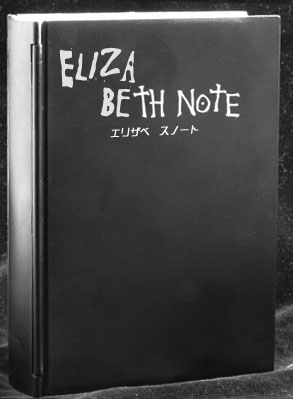 ELIZA
BETH NOTE
エリザベ スノート